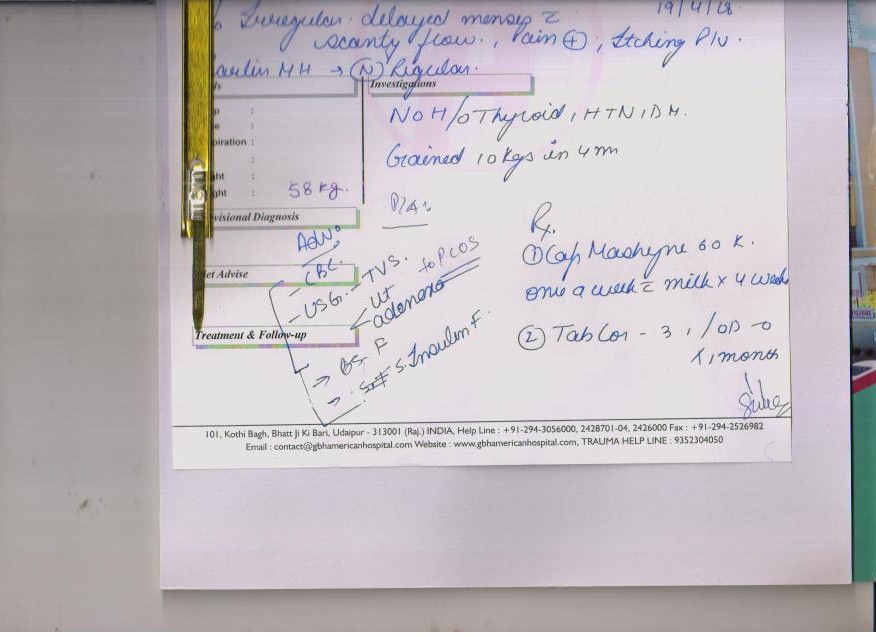 Irregular. delayed menses c̄
scanty flow., Pain ⊕, Itching P/V.
19/4/18
MH → (N) Regular.
Investigations
NO H/O Thyroid, HTN, DM.
Gained 10 kgs in 4 m
:
:
piration :
:
ht :
ght : 58 kg.
P/A:
visional Diagnosis
Adv.
- CBC.
et Advise
- USG. - TVS.
Ut
adenexa
to PCOS
Treatment & Follow-up
→ BS F
→ S. Insulin F.
Rx.
① Cap 60 K.
once a week c̄ milk x 4 weeks
② Tab Cor - 3 1/OD
x 1 month
101, Kothi Bagh, Bhatt Ji Ki Bari, Udaipur - 313001 (Raj.) INDIA, Help Line : +91-294-3056000, 2428701-04, 2426000 Fax : +91-294-2526982
Email : contact@gbhamericanhospital.com Website : www.gbhamericanhospital.com, TRAUMA HELP LINE : 9352304050